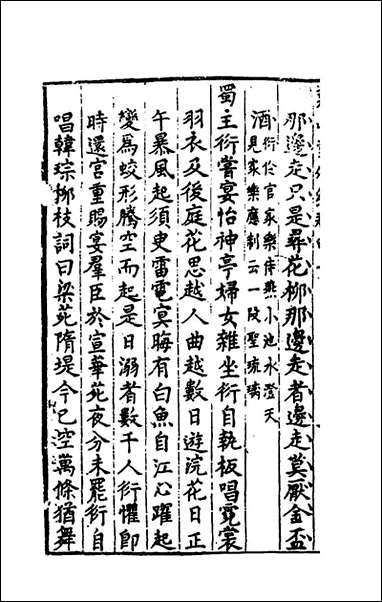 那邊走只是尋花柳那邊走者邊走莫厭金盃
酒衍伶官家樂侍燕小池水澄天
見家樂應制云一段聖琉璃
蜀主衍嘗宴怡神亭婦女雜坐衍自執板唱霓裳
羽衣及後庭花思越人曲越數日遊浣花日正
午暴風起須臾雷電冥晦有白魚自江心躍起
變爲蛟形騰空而起是日溺者數千人衍懼即
時還宮重賜宴羣臣於宣華苑夜分未罷衍自
唱韓琮栁枝詞曰梁苑隋堤今已空萬條猶舞